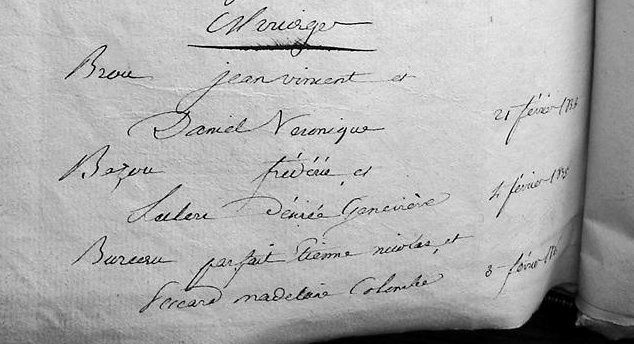 Mariages
Brou jean vincent et
Daniel Veronique 21 février
Bezou frédéric et
Désirée Geneviève 4 février
Bureau parfait Etienne nicolas et
madelaine Colombe 3 février